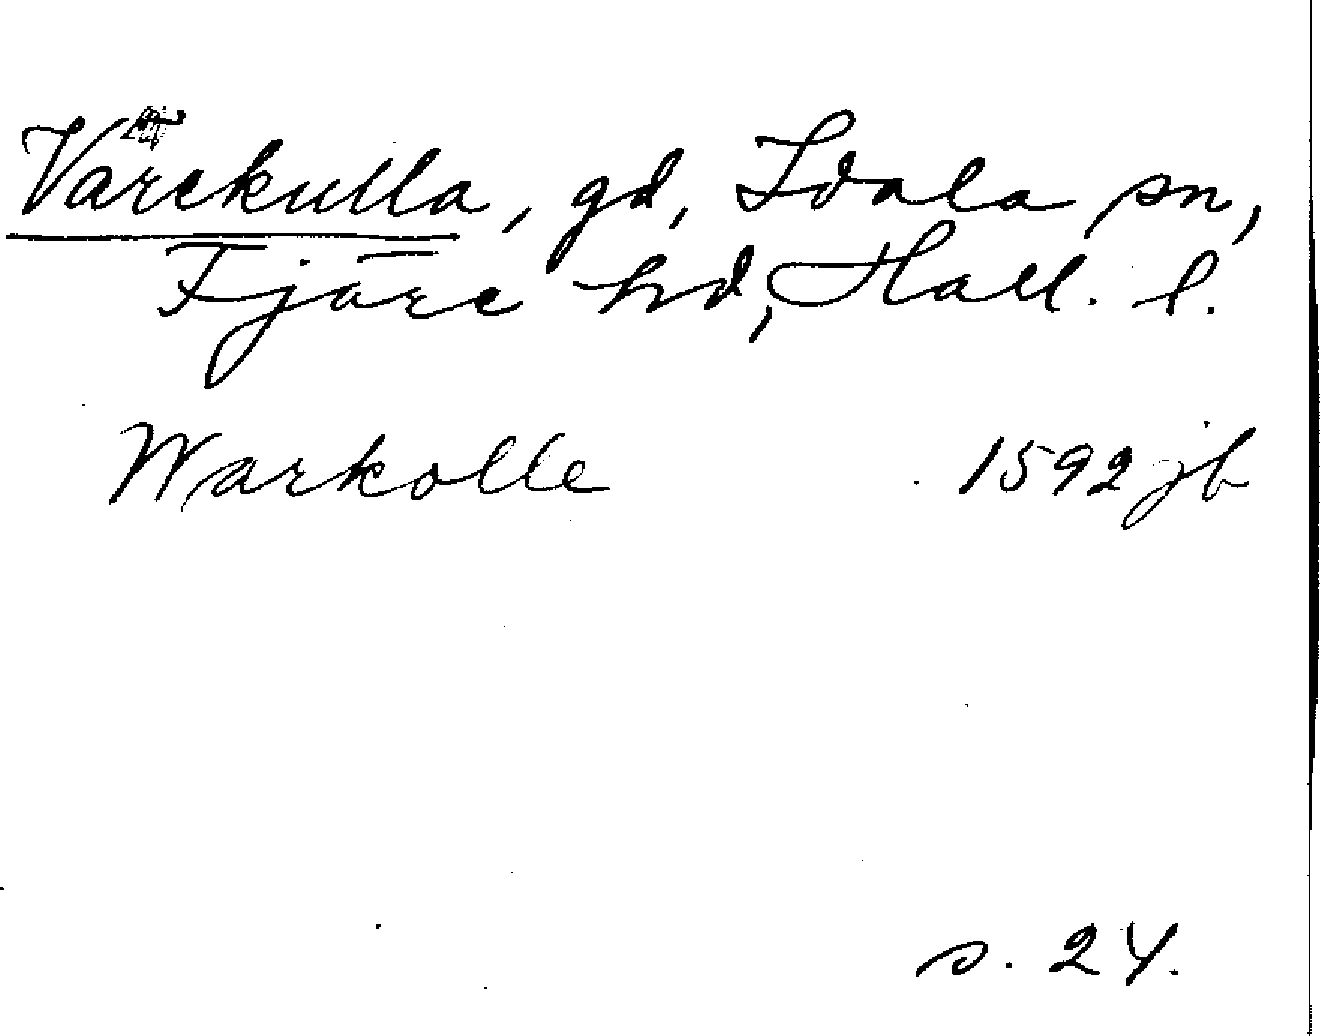 Värekulla, gd, Idala sn,
Fjäre hd, Hall. l.
Warkolle 1592 jb
s. 24.